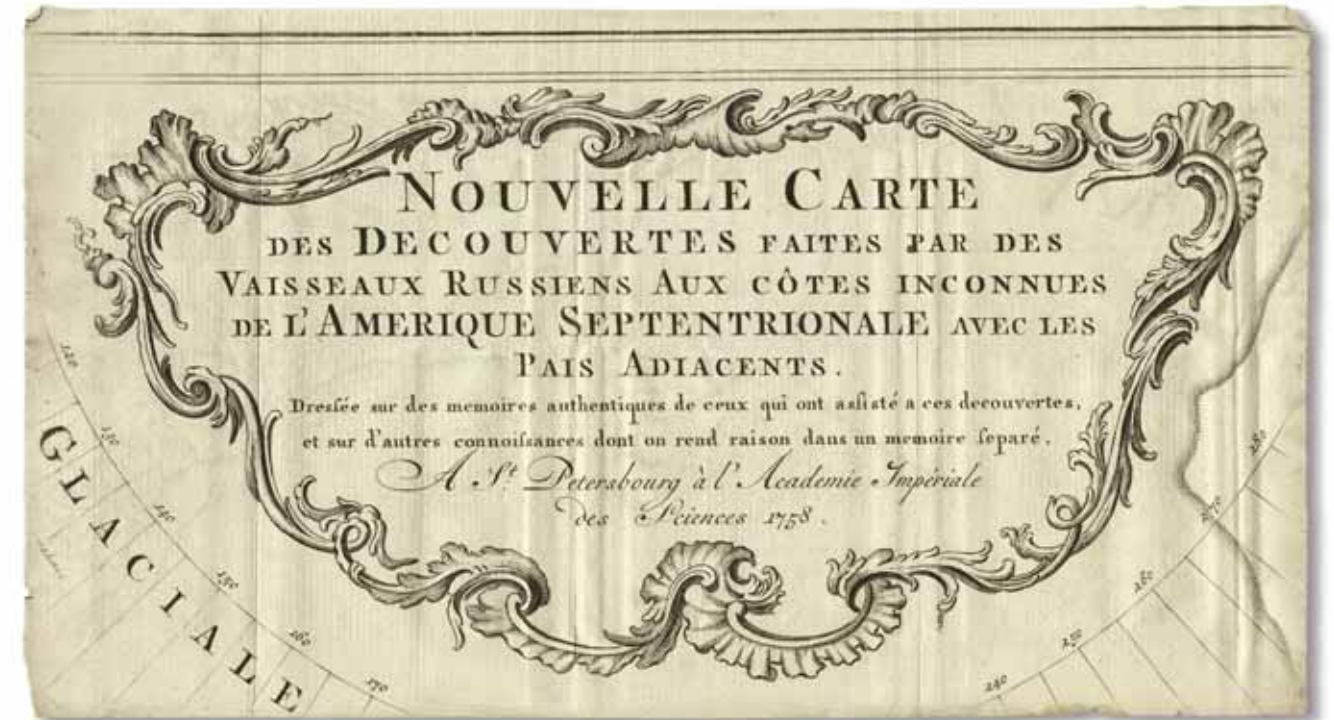 NOUVELLE CARTE
DES DECOUVERTES FAITES PAR DES
VAISSEAUX RUSSIENS AUX CÔTES INCONNUES
DE L'AMERIQUE SEPTENTRIONALE AVEC LES
PAIS ADIACENTS.
Dreſsée sur des memoires authentiques de ceux qui ont aſsisté a ces decouvertes,
et sur d'autres connoiſsances dont on rend raison dans un memoire ſeparé.
A St. Petersbourg à l'Academie Impériale
des Sciences 1758.
120
130
140
150
160
170
GLACIALE
240
250
260
270
280